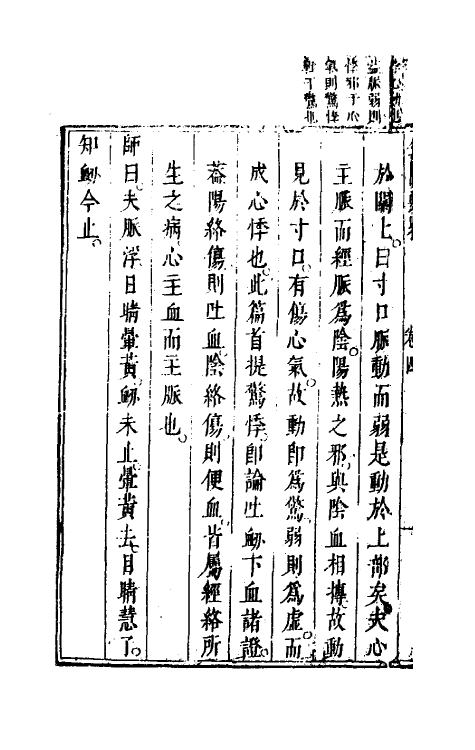 益脈弱則
悸邪于心
氣則驚悸
對于驚也
卷四
於關上曰寸口脈動而弱是動於上部矣夫心
主脈而經脈爲陰陽熱之邪與陰血相摶故動
見於寸口有傷心氣故動卽爲驚弱則爲虛而
成心悸也此篇首提驚悸卽論吐衂下血諸證
葢陽絡傷則吐血陰絡傷則便血皆屬經絡所
生之病心主血而主脈也
師曰夫脈浮目睛暈黃衂未止暈黃去目睛慧了
知衂今止